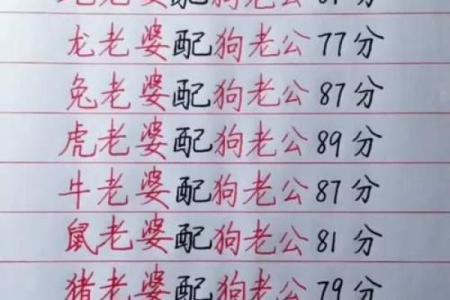 老婆配狗老公
龙老婆配狗老公77分
兔老婆配狗老公87分
虎老婆配狗老公89分
牛老婆配狗老公87分
鼠老婆配狗老公81分
猪老婆配狗老公79分